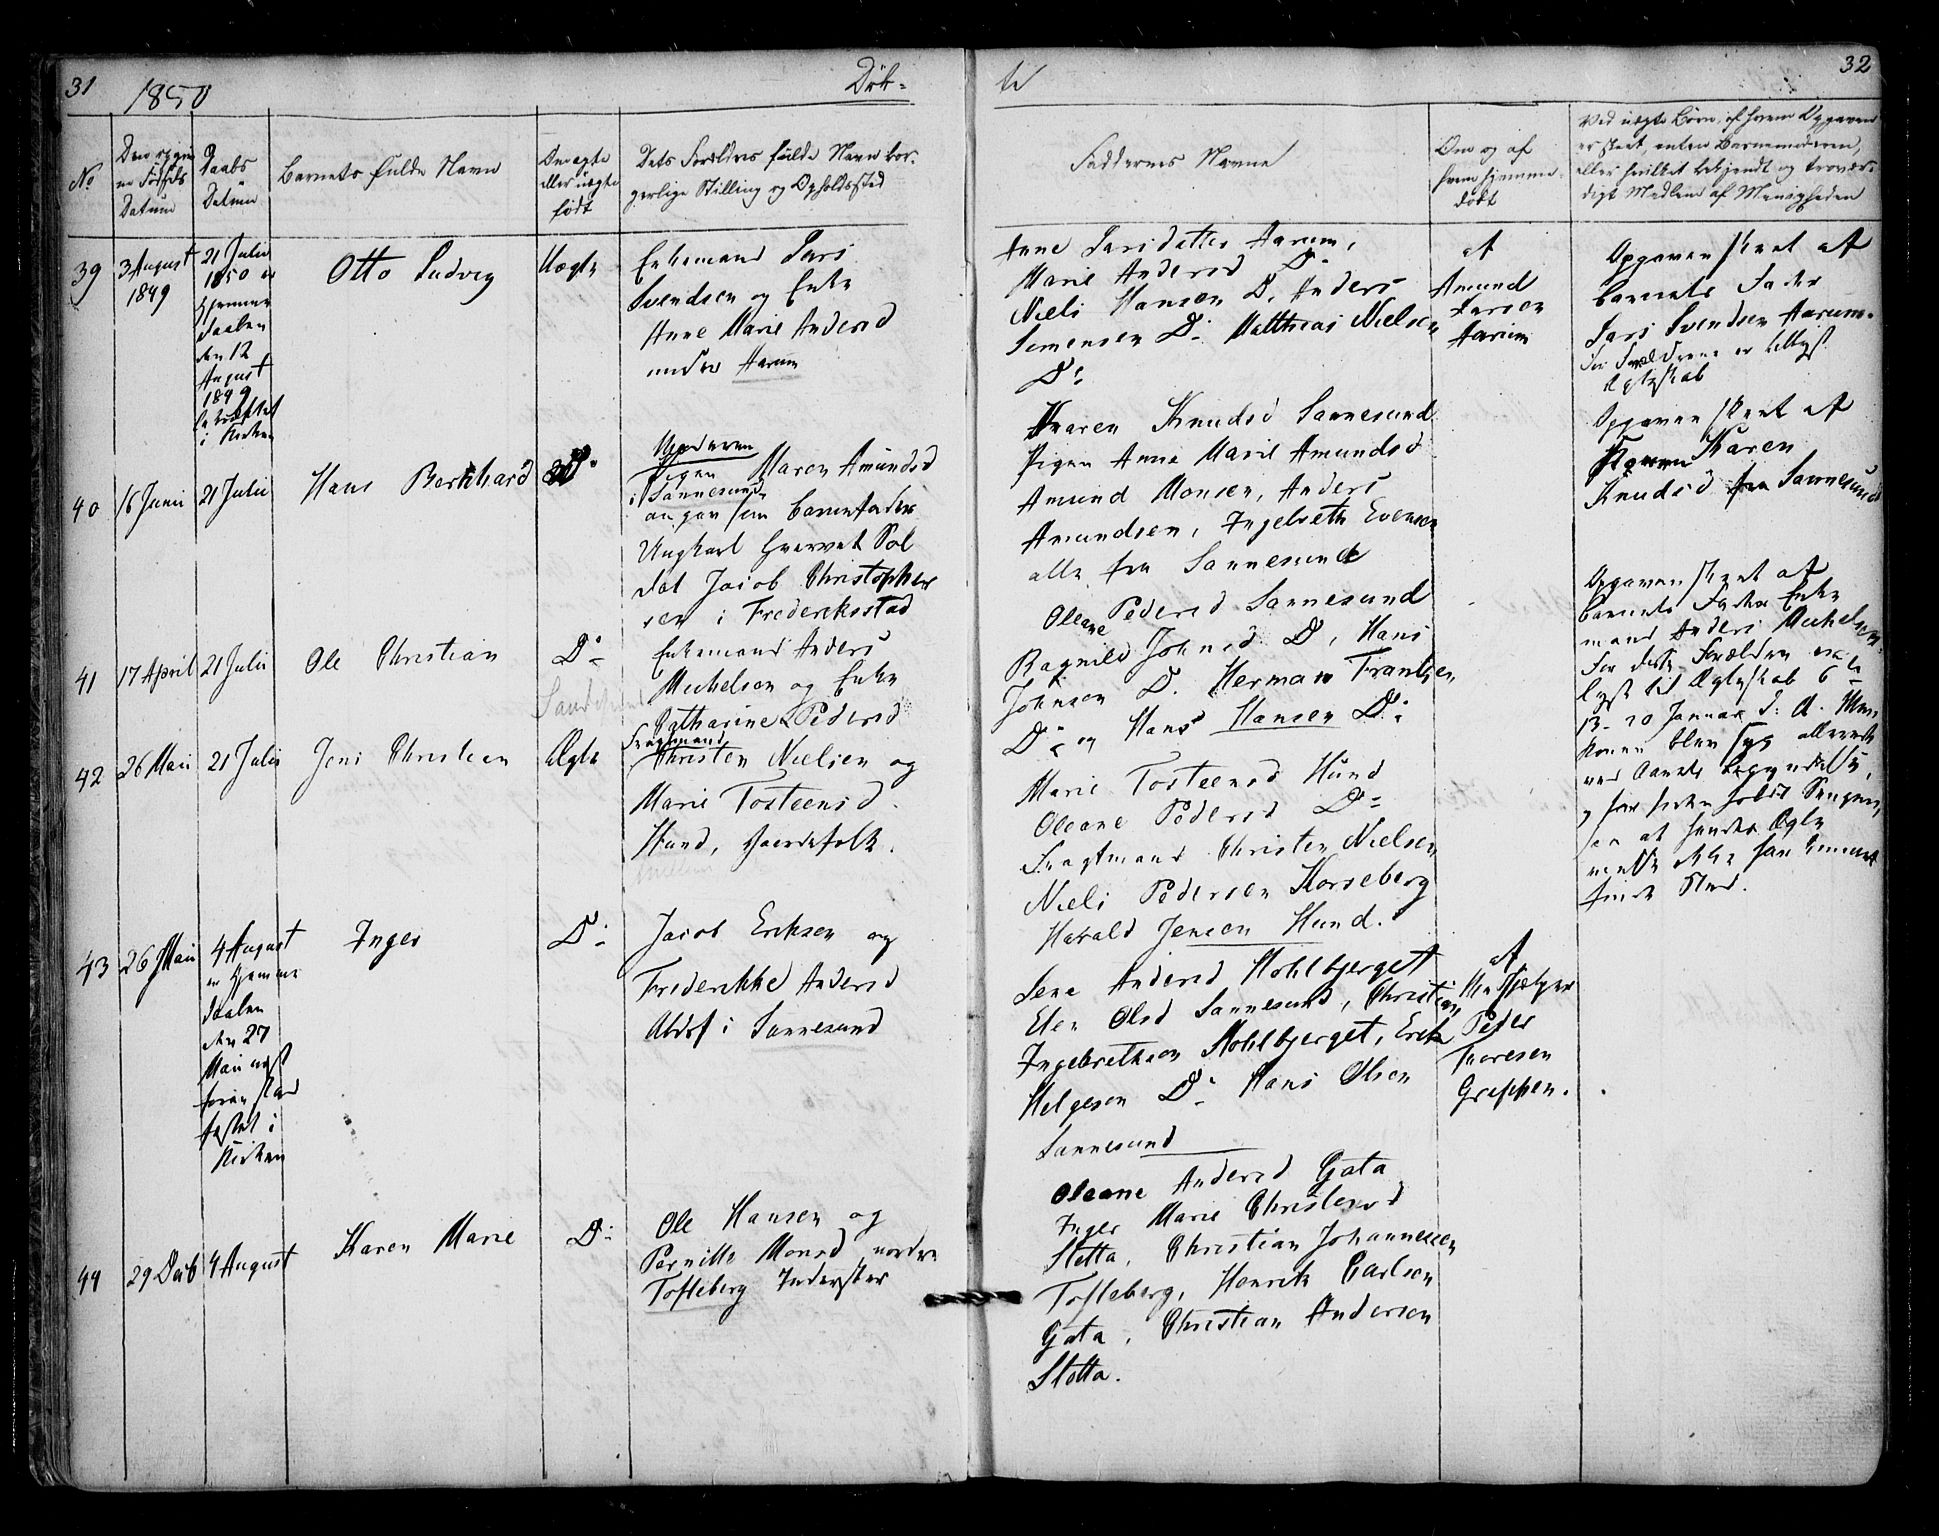 31
1850
Døb-
te
32
No
Den opgivne Fødsels Datum
Daabs Datum
Barnets fulde Navn
Om ægte eller uægte født
Dets Forældres fulde Navn bor-
gerlige Stilling og Opholdssted
Faddernes Navne
Om og af hvem hjemme-
døbt
Ved uægte Børn, af hvem Opgaven
er skeet, enten Barnemoderen,
eller hvilket bekjendt og trovær-
digt Medlem af Menigheden
39
3 August
1849
21 Julii
1850 er
Hjemme
daaben
den 12
August
1849
i Kirken
Otto Ludvig
Uægte
Enkemand Lars
Svendsen og Enke
Anne Marie Andersd
Aarum
Anne Larsdatter Aarum,
Marie Andersd Do
Niels Hansen Do. Anders
Simensen Do. Matthias Nielsen
Do
af
Amund
Larsen
Aarum
Opgaven skeet af
Barnets Fader
Lars Svendsen Aarum.
For Forældrene er tillyst
Ægteskab
40
16 Junii
21 Julii
Hans Bernhard
Do
Pigen Maren Amundsd
i Sannesund,
angav som Barnefader
Ungkarl hvervet Sol
dat Jacob Christopher
sen i Frederiksstad
Karen Knudsd Sannesund
Pigen Anne Marie Amundsd
Amund Monsen, Anders
Amundsen, Ingebreth Evensen
alle fra Sannesund
Opgaven skeet af
Karen
Knudsd fra Sannesund
41
17 April
21 Julii
Ole Christian
Do
Enkemand Anders
Michelsen og Enke
Catharine Pedersd
Oleane Pedersd Sannesund
Ragnild Johnsd Do, Hans
Johnsen Do. Herman Frantzen
Do og Hans Hansen Do.
Opgaven skeet af
Barnets Fader Enke
mand Anders Michelsen.
For disse Forældre er
lyst til Ægteskab 6te
13-20 Januar d. A. Men
Konen blev syg allerede
ved Aarets Begyndelse,
og har siden holdt Sengen,
saa at hendes Ægte
vielse ikke har kunnet
finde Sted.
42
26 Maii
21 Julii
Jens Christian
Ægte
Fragtmand
Christen Nielsen og
Marie Tosteensd.
Hund, Gaardefolk.
Marie Tosteensd Hund
Oleane Pedersd Do
Fragtmand Christen Nielsen
Niels Pedersen Korseberg
Harald Jensen Hund.
43
26 Maii
4 August
er Hjemme
daaben
den 27
Maii næst
foran stad
fæstet i
Kirken
Inger
Do
Jacob Eriksen og
Frederikke Andersd
i Sannesund
Lene Andersd Mohlbjerget
Elen Olsd Sannesund, Christian
Ingebrethsen Mohlbjerget, Erik
Helgesen Do. Hans Olsen
Sannesund
af
Peder
Thoresen
Greppen.
44
29 Deb
4 August
Karen Marie
Do
Ole Hansen og
Pernille Monsd nordre
Tofteberg Inderster
Oleane Andersd Gata
Inger Marie Christensd
Sletta, Christian Johannesen
Tofteberg, Henrik Carlsen
Gata, Christian Andersen
Sletta.